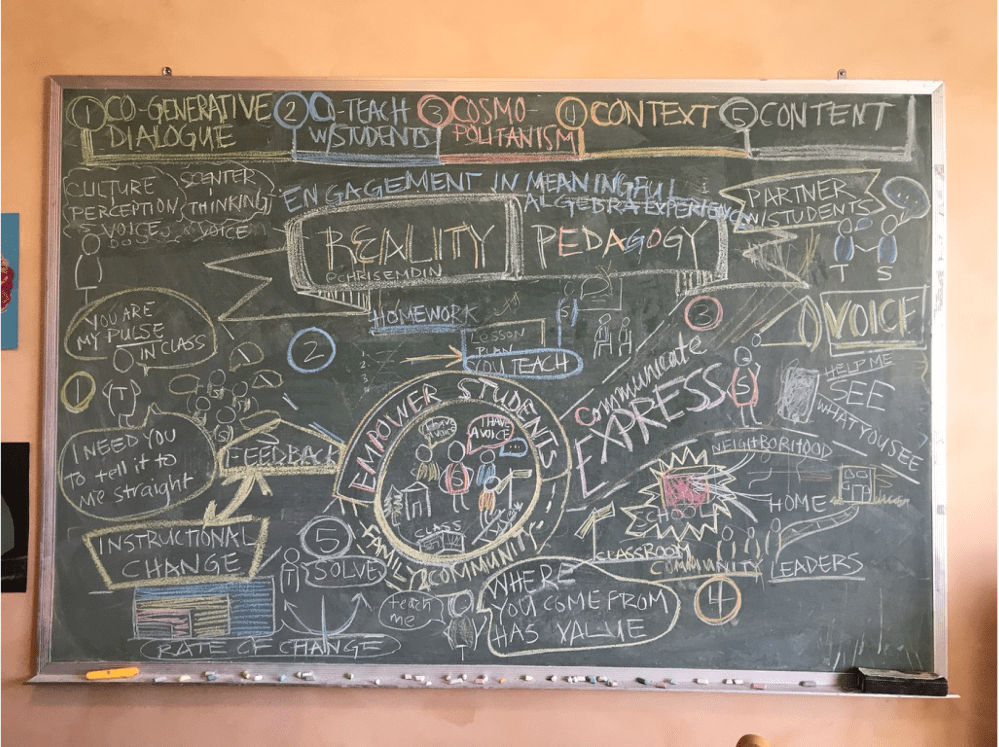 1 CO-GENERATIVE
DIALOGUE
2 CO-TEACH
W/STUDENTS
3 COSMO-
POLITANISM
4 CONTEXT
5 CONTENT
CULTURE
PERCEPTION
VOICE
THINKING
VOICE
ENGAGEMENT IN MEANINGFUL
ALGEBRA EXPERIENCE
PARTNER
W/STUDENTS
T S
REALITY PEDAGOGY
@CHRISEMDIN
YOU ARE
MY PULSE
IN CLASS
2
HOMEWORK
Lesson
PLAN
YOU TEACH
S
3
VOICE
HELP ME
SEE
WHAT YOU SEE
S
communicate
EXPRESS
1
T
S
I NEED YOU
to tell it to
me straight
FEEDBACK
EMPOWER STUDENTS
I HAVE
A VOICE
I HAVE
A VOICE
S
CLASS
FAMILY COMMUNITY
NEIGHBORHOOD
SCHOOL
HOME
CLASSROOM
COMMUNITY
LEADERS
4
INSTRUCTIONAL
CHANGE
5
T
SOLVE
RATE OF CHANGE
teach
me
WHERE
YOU COME FROM
HAS VALUE